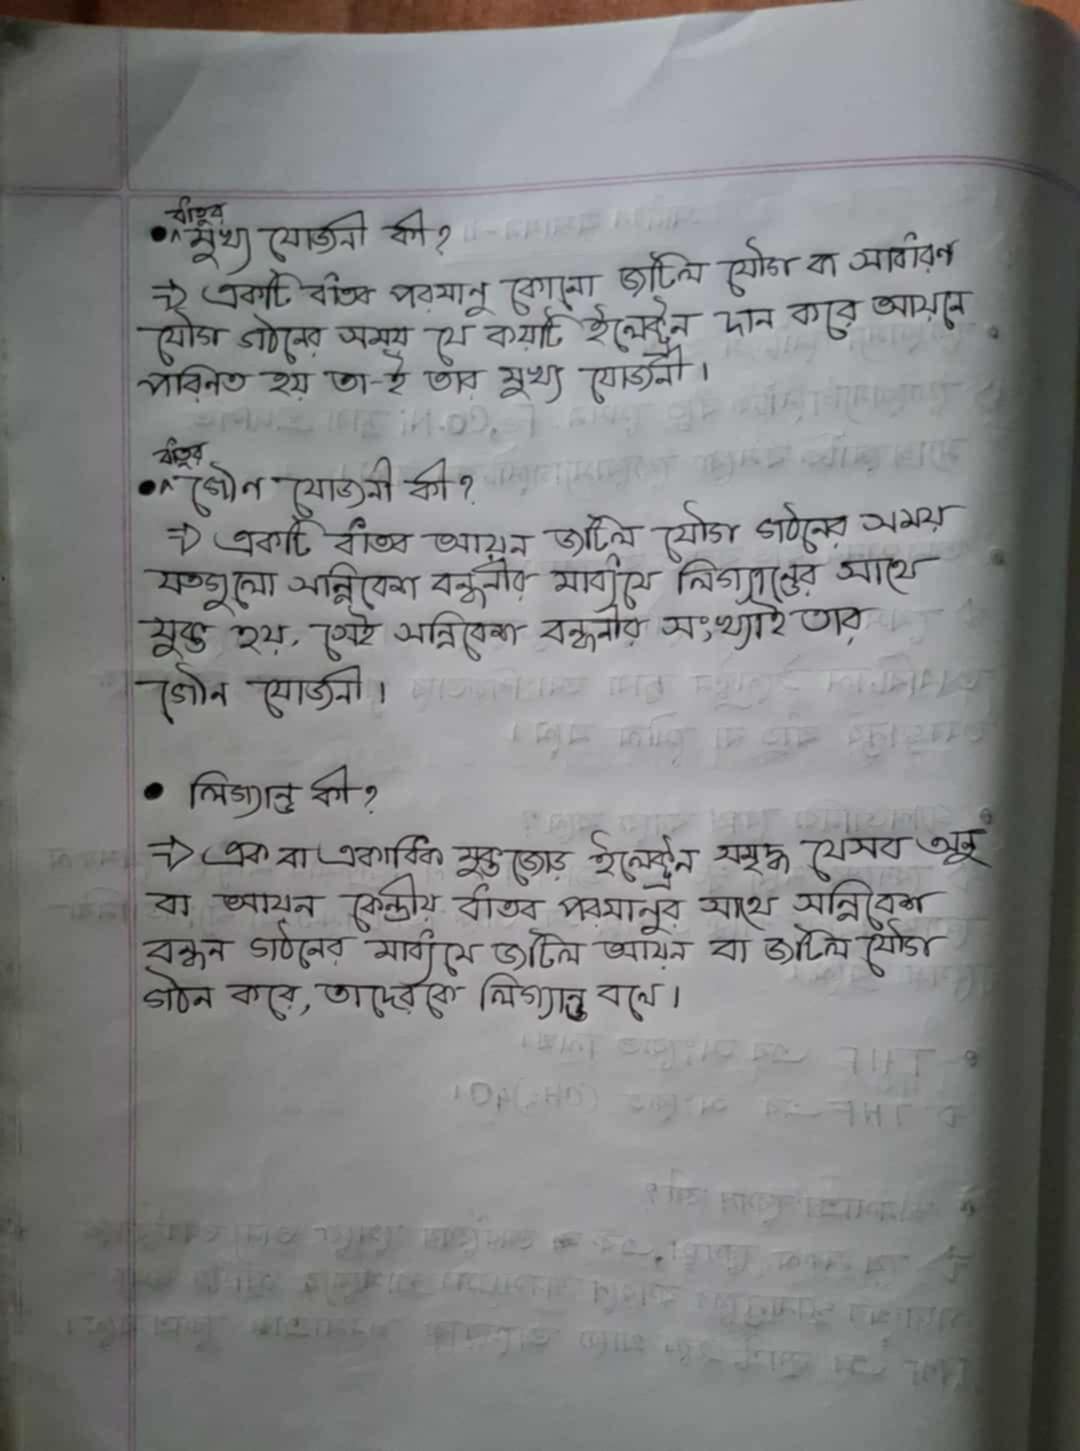 ধাতুর
• ^ মুখ্য যোজনী কী?
⇒ একটি ধাতব পরমানু কোনো জটিল যৌগ বা সাধারণ
যৌগ গঠনের সময় যে কয়টি ইলেক্ট্রন দান করে আয়নে
পরিনত হয় তা-ই তার মুখ্য যোজনী।
ধাতুর
• ^ গৌণ যোজনী কী?
⇒ একটি ধাতব আয়ন জটিল যৌগ গঠনের সময়
যতগুলো সন্নিবেশ বন্ধনীর মাধ্যমে লিগ্যান্ডের সাথে
যুক্ত হয়, সেই সন্নিবেশ বন্ধনীর সংখ্যাই তার
গৌন যোজনী।
• লিগ্যান্ড কী?
⇒ এক বা একাধিক মুক্তজোড় ইলেক্ট্রন সমৃদ্ধ যেসব অনু
বা আয়ন কেন্দ্রীয় ধাতব পরমানুর সাথে সন্নিবেশ
বন্ধন গঠনের মাধ্যমে জটিল আয়ন বা জটিল যৌগ
গঠন করে, তাদেরকে লিগ্যান্ড বলে।